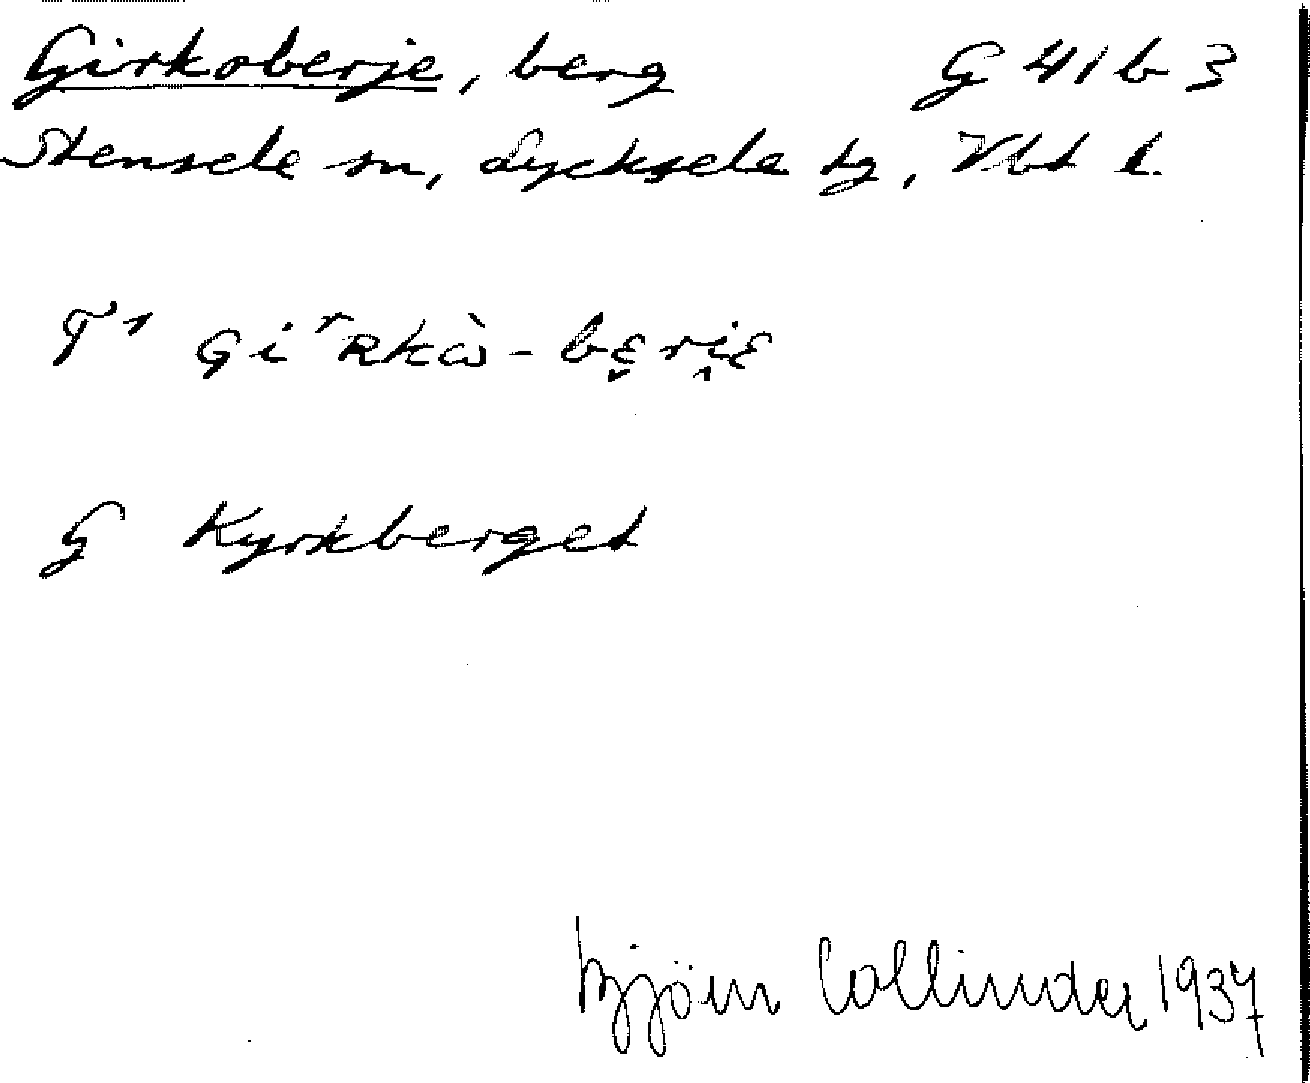 Girkoberje, berg G 41 b 3
Stensele sn, Lycksele tg, Vbt l.
T¹ Gi ʳRkɷ̀ - bɛ̬ri̭ɛ
G Kyrkberget
Björn Collinder 1937